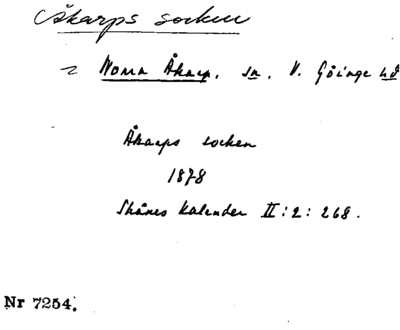 Åkarps socken
= Norra Åkarp, sn, V. Göinge hd
Åkarps socken
1878
Skånes kalender II:2:268.
Nr 7254.